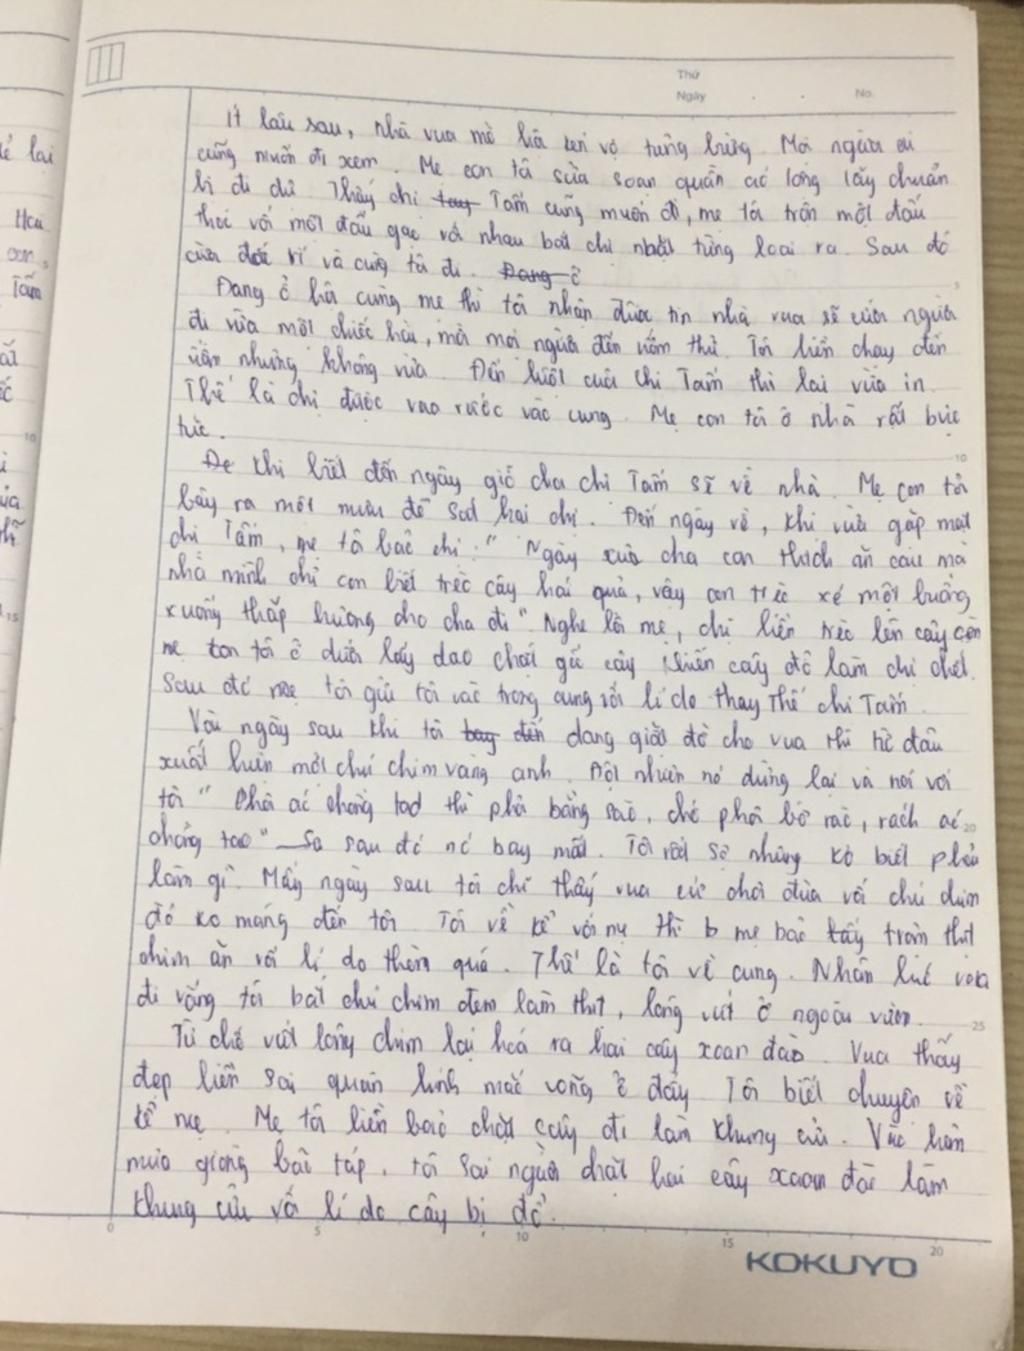 Thứ
Ngày . . No.
Ít lâu sau, nhà vua mở hội kén vợ tưng bừng. Mọi người ai
cũng muốn đi xem. Mẹ con tôi sửa soạn quần áo lộng lẫy chuẩn
bị đi dự. Thấy chị tay Tấm cũng muốn đi, mẹ tôi trộn một đấu
thóc với một đấu gạo với nhau bắt chị nhặt từng loại ra. Sau đó
vừa đắc trí và cùng tôi đi. Đang ở
Đang ở hội cùng mẹ thì tôi nhận được tin nhà vua sẽ cưới người
đi vừa một chiếc hài, mà mọi người đến ướm thử. Tôi liền chạy đến
nhưng không vừa. Đến lượt cuối chị Tấm thì lại vừa in.
Thế là chị được vào rước vào cung. Mẹ con tôi ở nhà rất bực
tức.
Để khi biết đến ngày giỗ cha chị Tấm sẽ về nhà. Mẹ con tôi
bày ra một mưu để hại chị. Đến ngày về, khi vừa gặp mặt
chị Tấm, mẹ tôi bảo chị: " Ngày xưa cha con thích ăn cau mà
nhà mình chỉ con biết trèo cây hái quả, vậy con trèo xé một buồng
xuống thắp hương cho cha đi" Nghe lời mẹ, chị liền trèo lên cây còn
mẹ con tôi ở dưới lấy dao chặt gốc cây khiến cây đổ làm chị chết.
Sau đó mẹ tôi gửi tôi vào trong cung với lí do thay thế chị Tấm.
Vài ngày sau khi tôi tay đến đang giặt đồ cho vua thì từ đâu
xuất hiện một chú chim vàng anh. Đột nhiên nó dừng lại và nói với
tôi " Phơi áo chồng tao thì phơi bằng sào, chớ phơi bờ rào, rách áo
chồng tao" Sa sau đó nó bay mất. Tôi rất sợ nhưng ko biết phải
làm gì. Mấy ngày sau tôi chỉ thấy vua cứ chơi đùa với chú chim
đó ko màng đến tôi. Tôi về kể với mẹ thì b mẹ bảo thịt
chim ăn với lí do thèm quá. Thế là tôi về cung. Nhân lúc vua
đi vắng tôi bắt chú chim đem làm thịt, lông vứt ở ngoài vườn.
Từ chỗ vứt lông chim lại hoá ra hai cây xoan đào. Vua thấy
đẹp liền sai quân lính mắc võng ở đấy. Tôi biết chuyện về
kể mẹ. Mẹ tôi liền bảo chặt cây đi làm khung cửi. Vào hôm
mưa giông bão táp, tôi sai người chặt hai cây xoan đào làm
khung cửi với lí do cây bị đổ.
KOKUYO